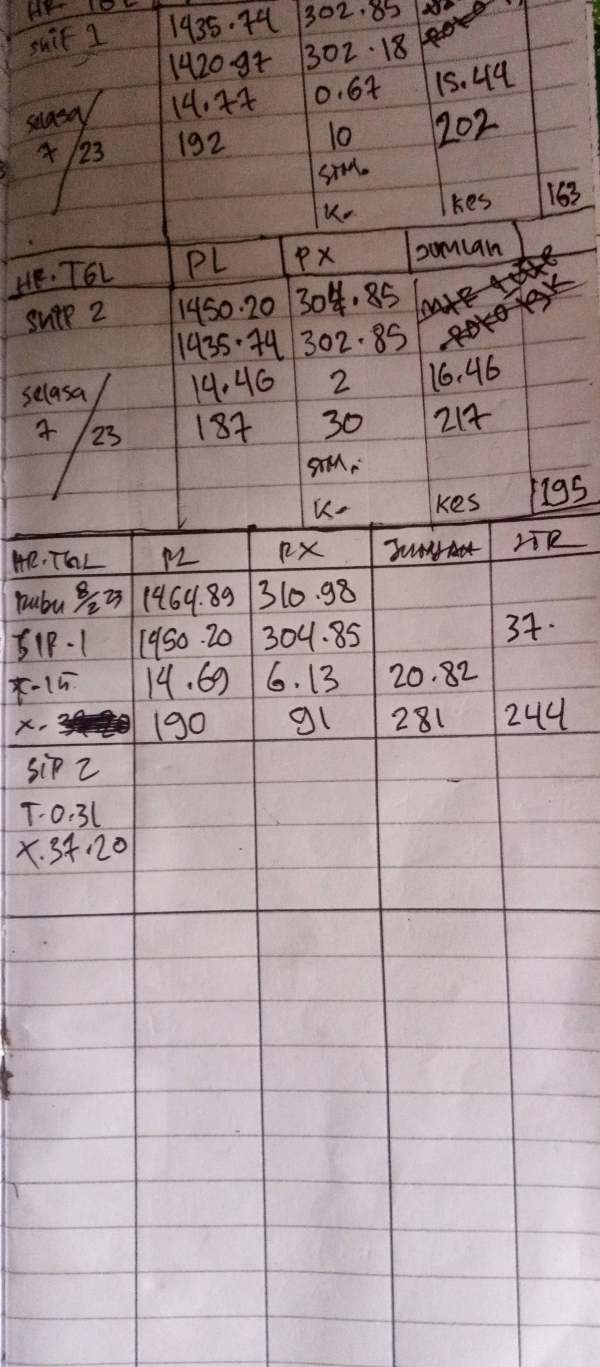 HR. TGL
shif 1 1435.74 302.85
1420.97 302.18
14.77 0.67 15.44
selasa/
7/23 192 10 202
STM.
K. kes 163
HR.TGL PL PX JUMLAH
Shif 2 1450.20 304.85
1435.74 302.85
selasa/ 14.46 2 16.46
7/23 187 30 217
STM.
K. kes 195
HR.TGL PL PX JUMLAH
Rubu 8/2 23 1464.89 310.98
SIP-1 1450.20 304.85 37.
14.69 6.13 20.82
X. 190 91 281 244
SIP 2
T.0.31
X.37.20